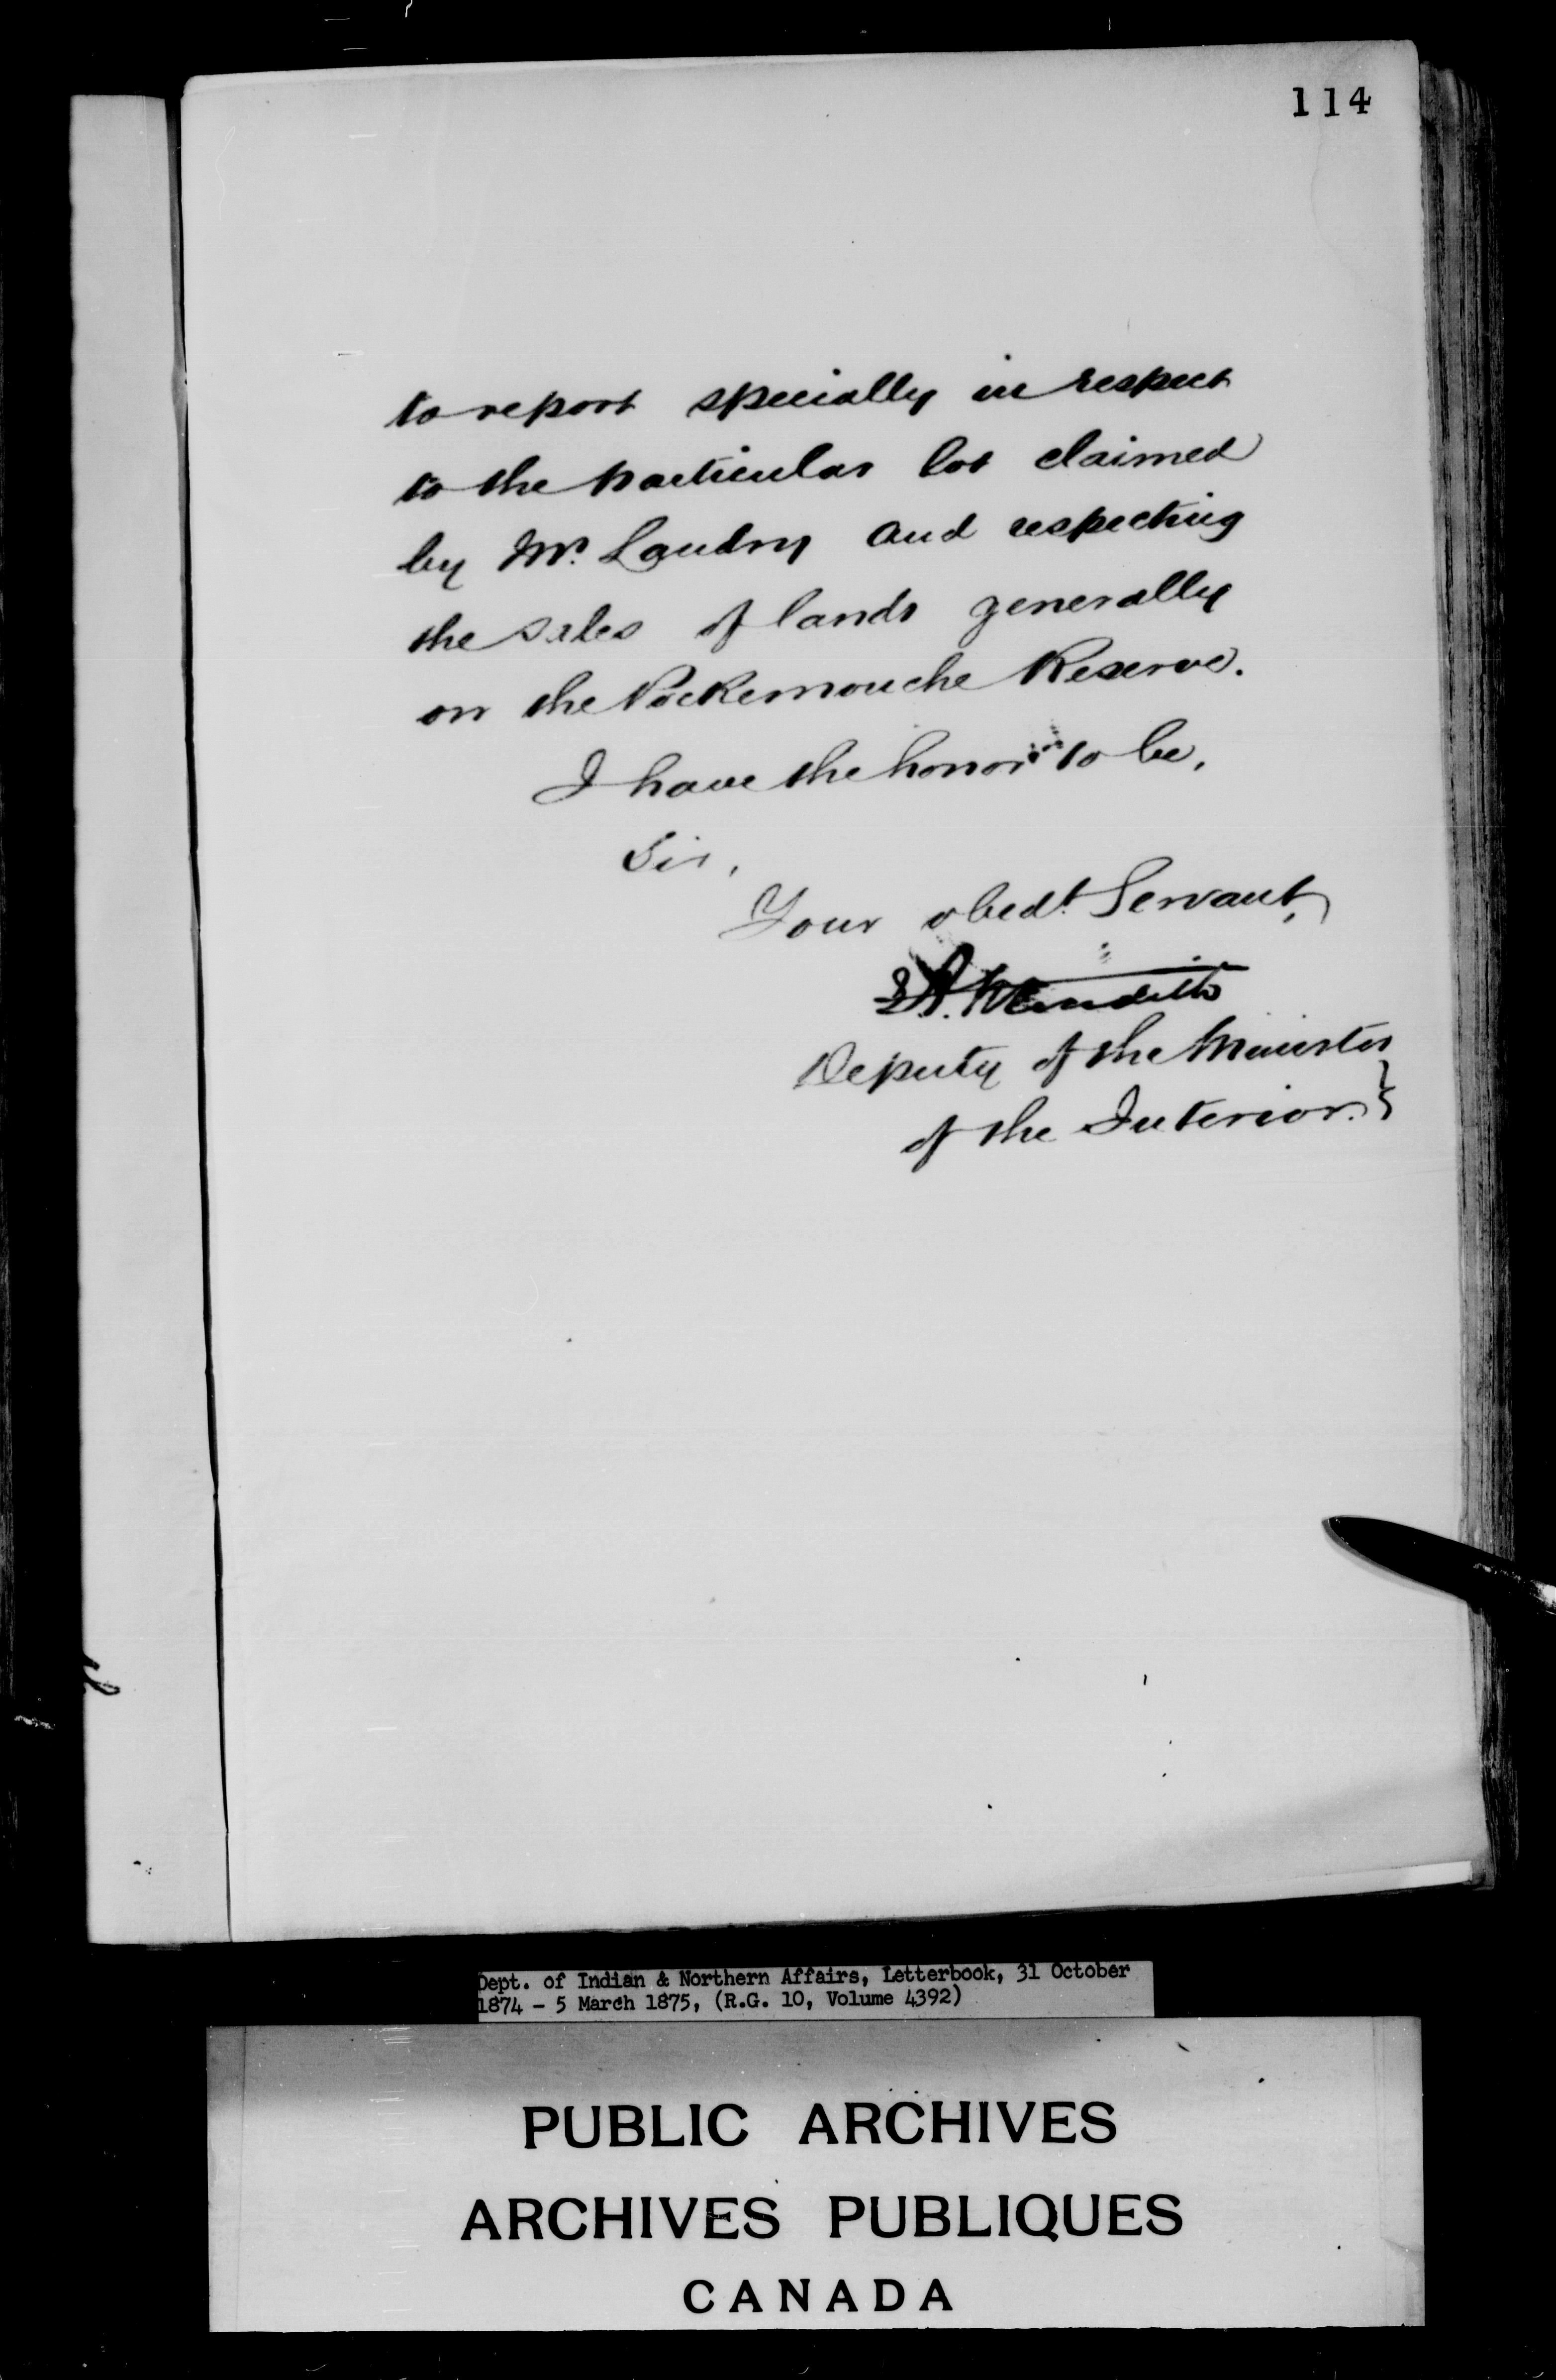 114
to report specially in respect
to the particular lot claimed
by Mr. Landry and respecting
the sales of lands generally
on the Pockemouche Reserve.
I have the honor to be,
Sir,
Your obedt. Servant,
E.A. Meredith
Deputy of the Minister
of the Interior.
Dept. of Indian & Northern Affairs, Letterbook, 31 October
1874 - 5 March 1875, (R.G. 10, Volume 4392)
PUBLIC ARCHIVES
ARCHIVES PUBLIQUES
CANADA